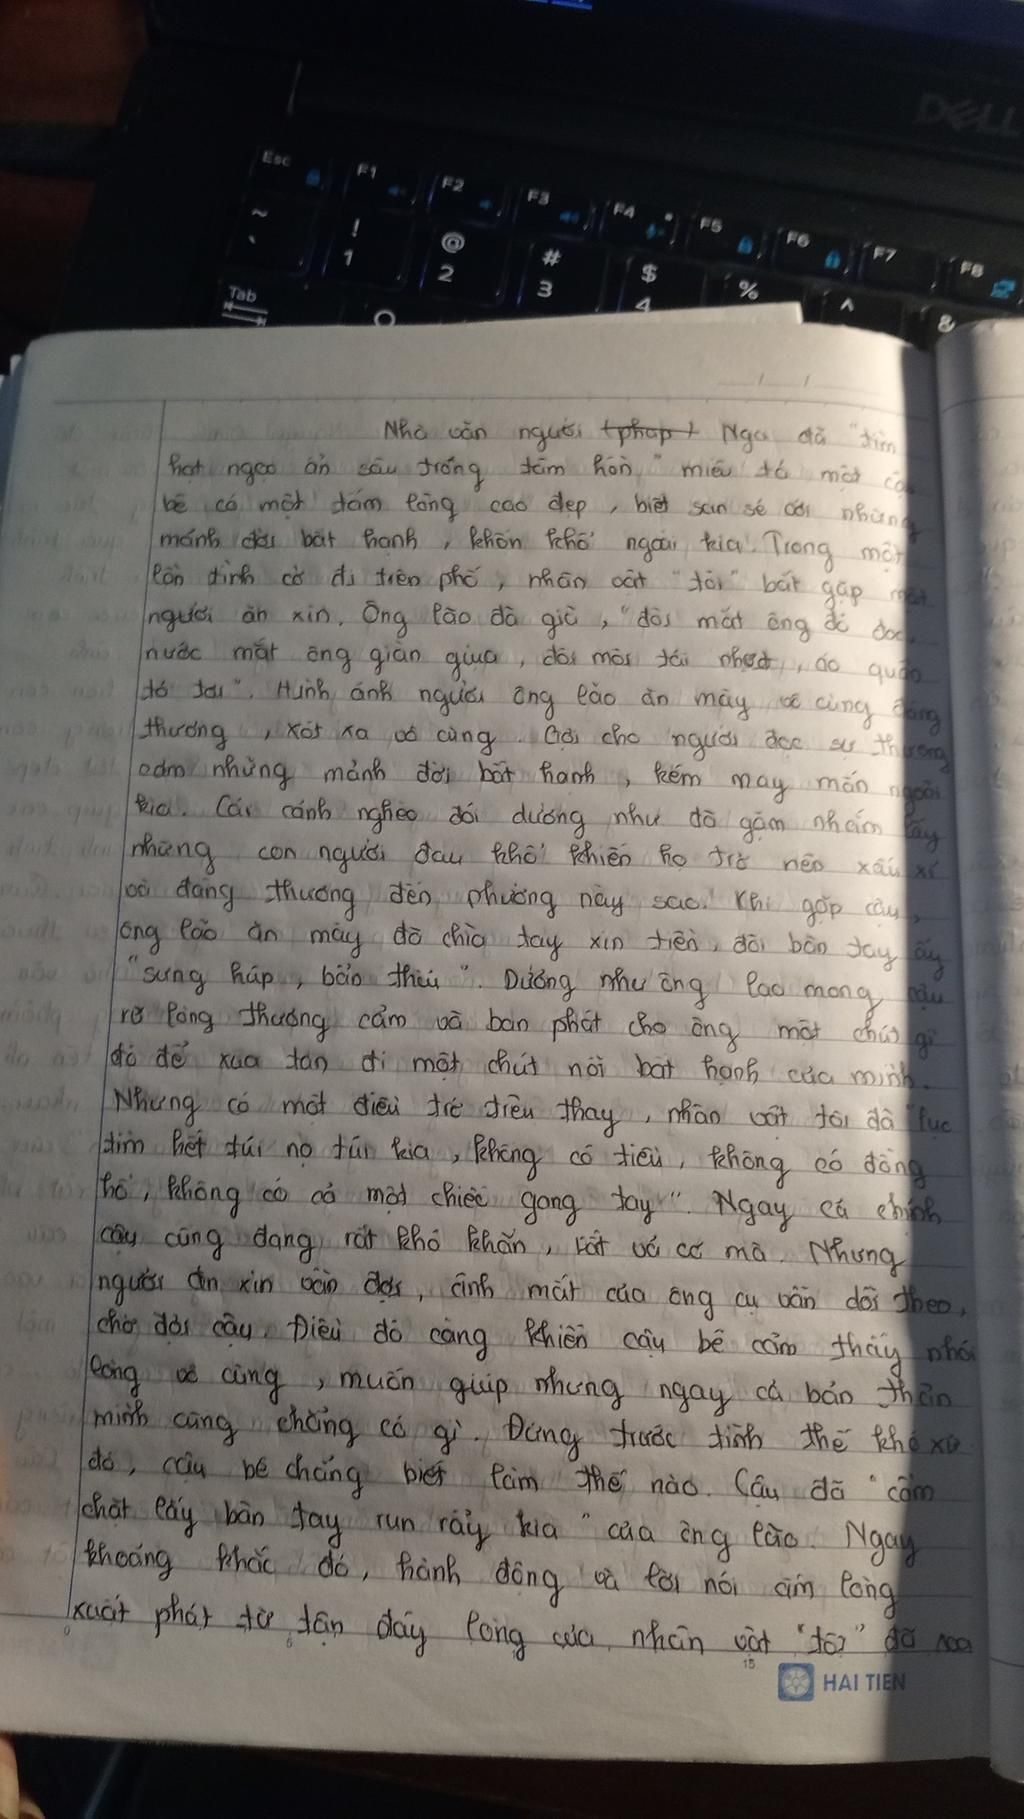 DELL
Esc F1 F2 F3 F4 F5 F6 F7 F8
~ ! @ # $ % ^ &
` 1 2 3 4
Tab
Nhà văn người tphap t Nga đã "tìm
hạt ngọc ẩn sâu trong tâm hồn" miêu tả một
bé có một tấm lòng cao đẹp, biết san sẻ với những
mảnh đời bất hạnh, khốn khổ ngoài kia. Trong một
lần tình cờ đi trên phố, nhân vật "tôi" bắt gặp một
người ăn xin. Ông lão đã già, "đôi mắt ông đỏ đọc
nước mắt ông giàn giụa, đôi môi tái nhợt, áo quần
tả tơi". Hình ảnh người ông lão ăn mày vô cùng đáng
thương, xót xa vô cùng. Gợi cho người đọc sự thương
cảm những mảnh đời bất hạnh, kém may mắn ngoài
kia. Cái cảnh nghèo đói dường như đã gặm nhấm lấy
những con người đau khổ khiến họ trở nên xấu xí
và đáng thương đến phường này sao. Khi gặp cậu,
ông lão ăn mày đã chìa tay xin tiền, đôi bàn tay ấy
"sưng húp, bẩn thỉu". Dường như ông lao mong cậu
rở lòng thương cảm và ban phát cho ông một chút gì
đó để xua tan đi một chút nỗi bất hạnh của mình.
Nhưng có một điều trớ trêu thay, nhân vật tôi đã "lục
tìm hết túi nọ túi kia, không có tiều, không có đồng
hồ, không có cả một chiếc gang tay". Ngay cả chính
cậu cũng đang rất khó khăn, vất vả cơ mà. Nhưng
người ăn xin vẫn đợi, ánh mắt của ông cụ vẫn dõi theo,
chờ đợi cậu. Điều đó càng khiến cậu bé cảm thấy nhói
lòng vô cùng, muốn giúp nhưng ngay cả bản thân
mình cũng chẳng có gì. Đứng trước tình thế khó xử
đó, cậu bé chẳng biết làm thế nào. Cậu đã "cầm
chặt lấy bàn tay run rẩy kia" của ông lão. Ngay
khoảng khắc đó, hành động và lời nói ấm lòng
xuất phát từ tận đáy lòng của nhân vật "tôi" đã
15
HAI TIEN